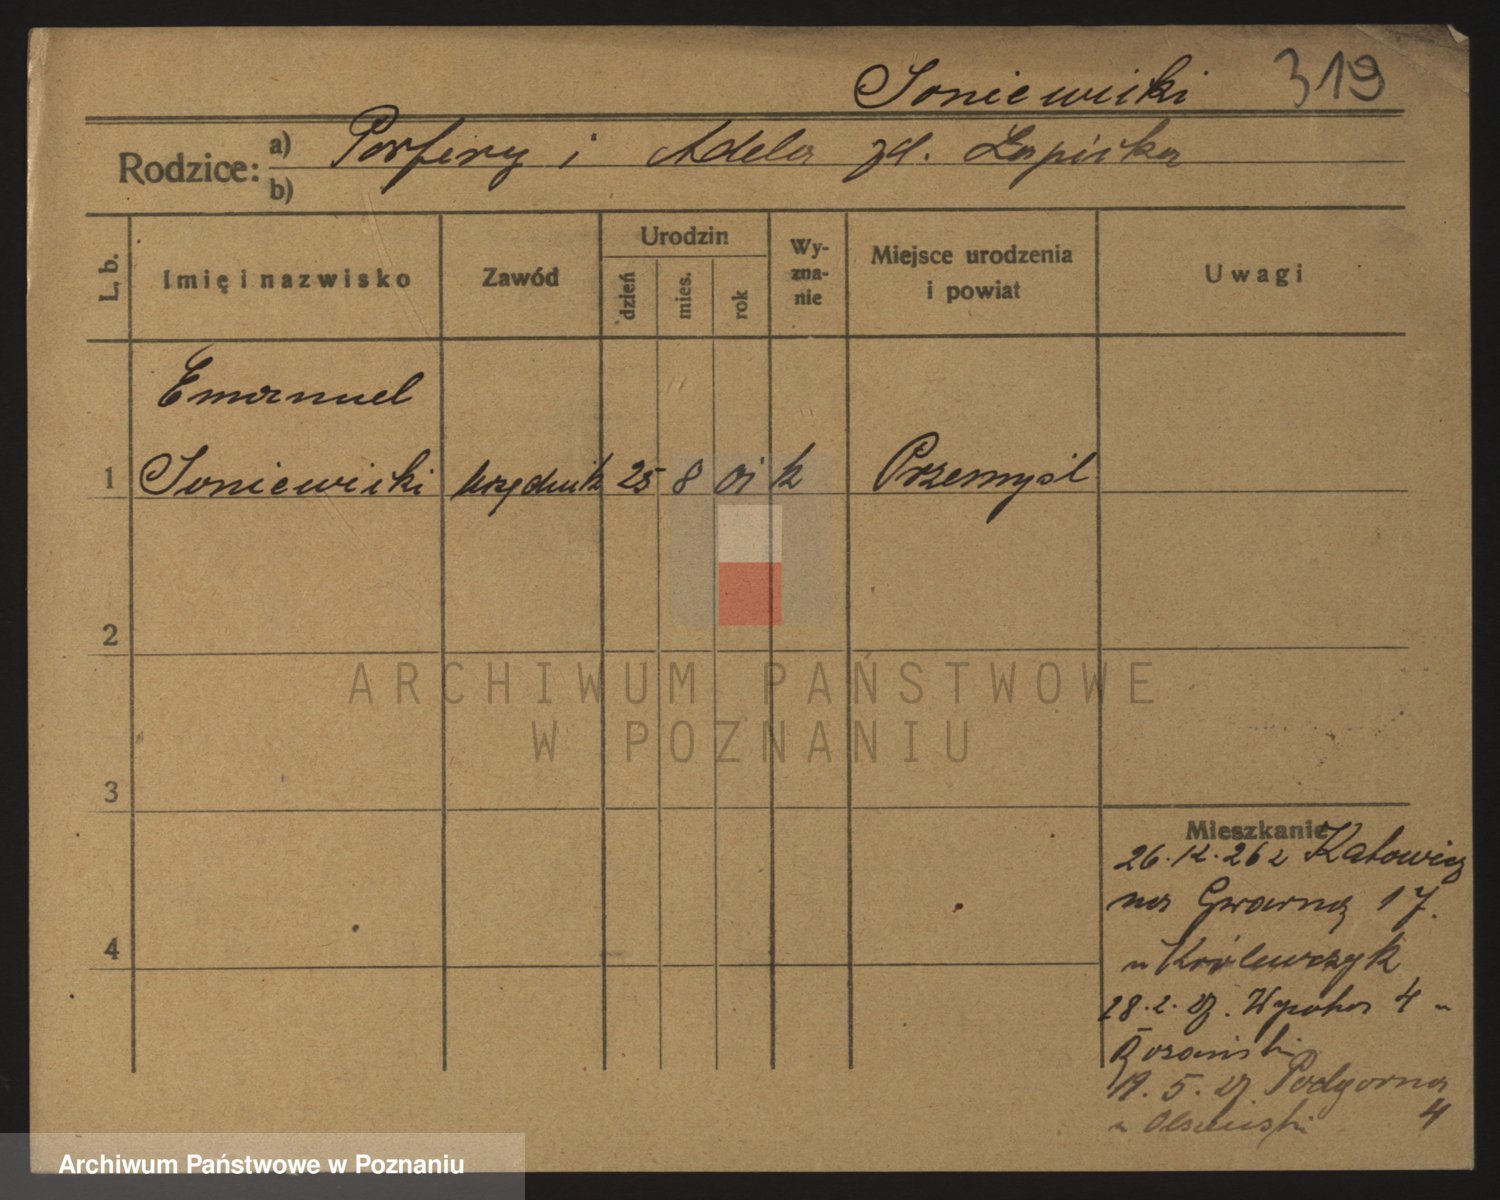 Soniewicki 319
Rodzice: a) Porfiry i Adela zd. Łapicka
b)
L. b. Imię i nazwisko Zawód Urodzin dzień mies. rok Wy-zna-nie Miejsce urodzenia i powiat Uwagi
Emanuel
1 Soniewicki urzędnik 25 8 01 k Przemyśl
2
ARCHIWUM PAŃSTWOWE
W POZNANIU
3
Mieszkanie
26.12.26 z Katowic
na Gwarną 17.
u Królewczyk
4
28.2.27. 4 u
19.5.27 Podgorna
u 4
Archiwum Państwowe w Poznaniu